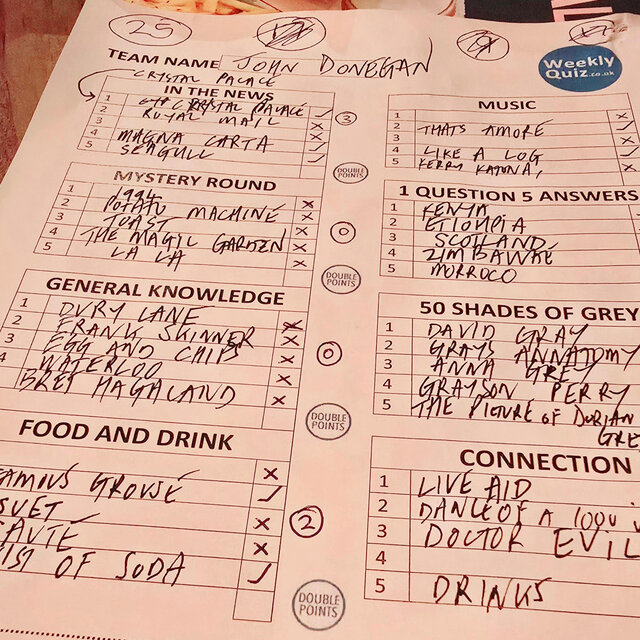 25
TEAM NAME JOHN DONEGAN
Weekly
Quiz.co.uk
CRYSTAL PALACE
IN THE NEWS
1 CRYSTAL PALACE
2 ROYAL MAIL
3
4 MAGNA CARTA
5 SEAGULL
3
DOUBLE
POINTS
MYSTERY ROUND
1 1994
2 POTATO MACHINE
3 TOAST
4 THE MAGIC GARDEN
5 LA LA
0
DOUBLE
POINTS
GENERAL KNOWLEDGE
1 DURY LANE
2 FRANK SKINNER
3 EGG AND CHIPS
4 WATERLOO
BRET HAGALAND
0
DOUBLE
POINTS
FOOD AND DRINK
FAMOUS GROUSE
SUET
SAUTE
OF SODA
2
DOUBLE
POINTS
MUSIC
1
2 THATS AMORE
3
4 LIKE A LOG
5 KERRY KATONA,
1 QUESTION 5 ANSWERS
1 KENYA
2 ETIOUPIA
3 SCOTLAND
4 ZIMBAWAE
5 MORROCO
50 SHADES OF GREY
1 DAVID GRAY
2 GRAYS ANNATOMY
3 ANNA GREY
4 GRAYSON PERRY
5 THE PICTURE OF DORIAN
GRE
CONNECTION
1 LIVE AID
2 DANCE OF A 1000 V
3 DOCTOR EVIL
4
5 DRINKS